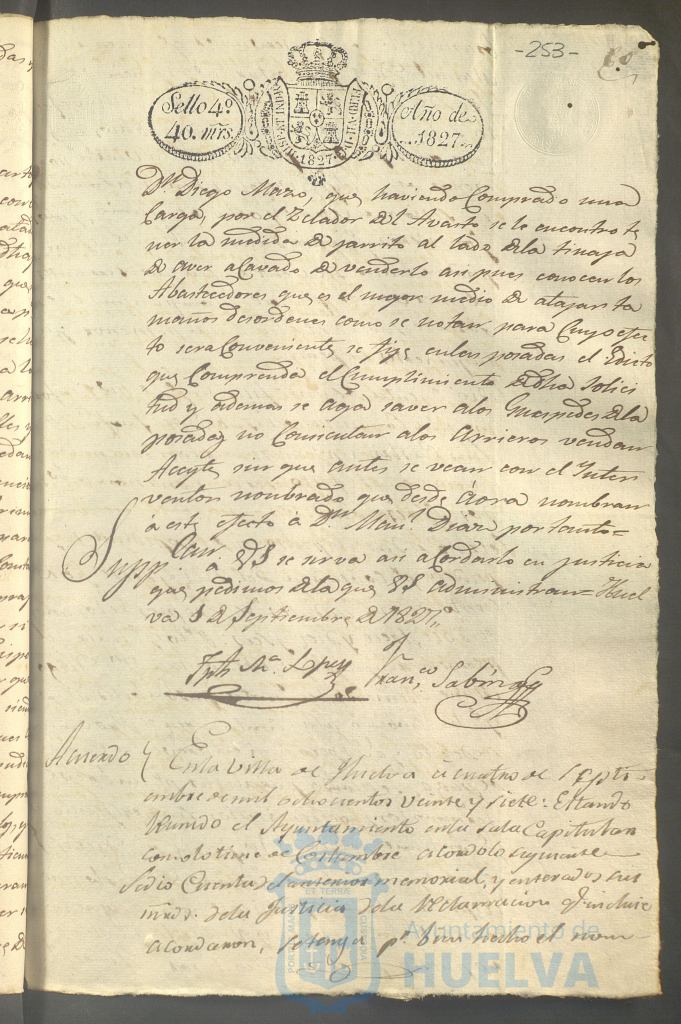 -253-
Sello 4º
40. mrs.
HISP. ET IND. R.
1827
Año de
1827.
Dn. Diego Mazo, que haviendo Comprado una
Carga, por el Zelador del Avasto se le encontro te
ner la medida de jarrito al lado dela tinaja
de aver acavado de venderlo asi pues conocen los
Abastecedores que es el mejor medio de atajar ta
maños desordenes como se notan para Cuyo efec
to sera Conveniente se fije en las posadas el Edicto
que Comprenda el Cumplimiento de dha Solici
tud y ademas se aga saver alos Guespedes de la
posadas no Consientan alos Arrieros vendan
Aceyte sin que antes se vean con el Inter
ventor nombrado que desde áora nombran
á este efecto á Dn. Manl. Diaz por tanto=
Suppcan. a VS se sirva asi acordarlo en justicia
que pedimos dela que VS administran= Huel
va 3 de Septiembre de 1827,,
Jph Ma. Lopez
Franco. Sabino
Acuerdo
En la Villa de Huelva á cuatro de Septi
embre de mil ochocientos veinte y siete: Estando
Reunido el Ayuntamiento en la sala Capitular
como lo tiene de Costumbre acordo lo siguiente
Se dio Cuenta del anterior memorial, y enterados sus
mrds. de la Justicia de la Reclamacion qe. incluie
acordaron, se tenga pr. bien hecho el nom-
Ayuntamiento de
HUELVA